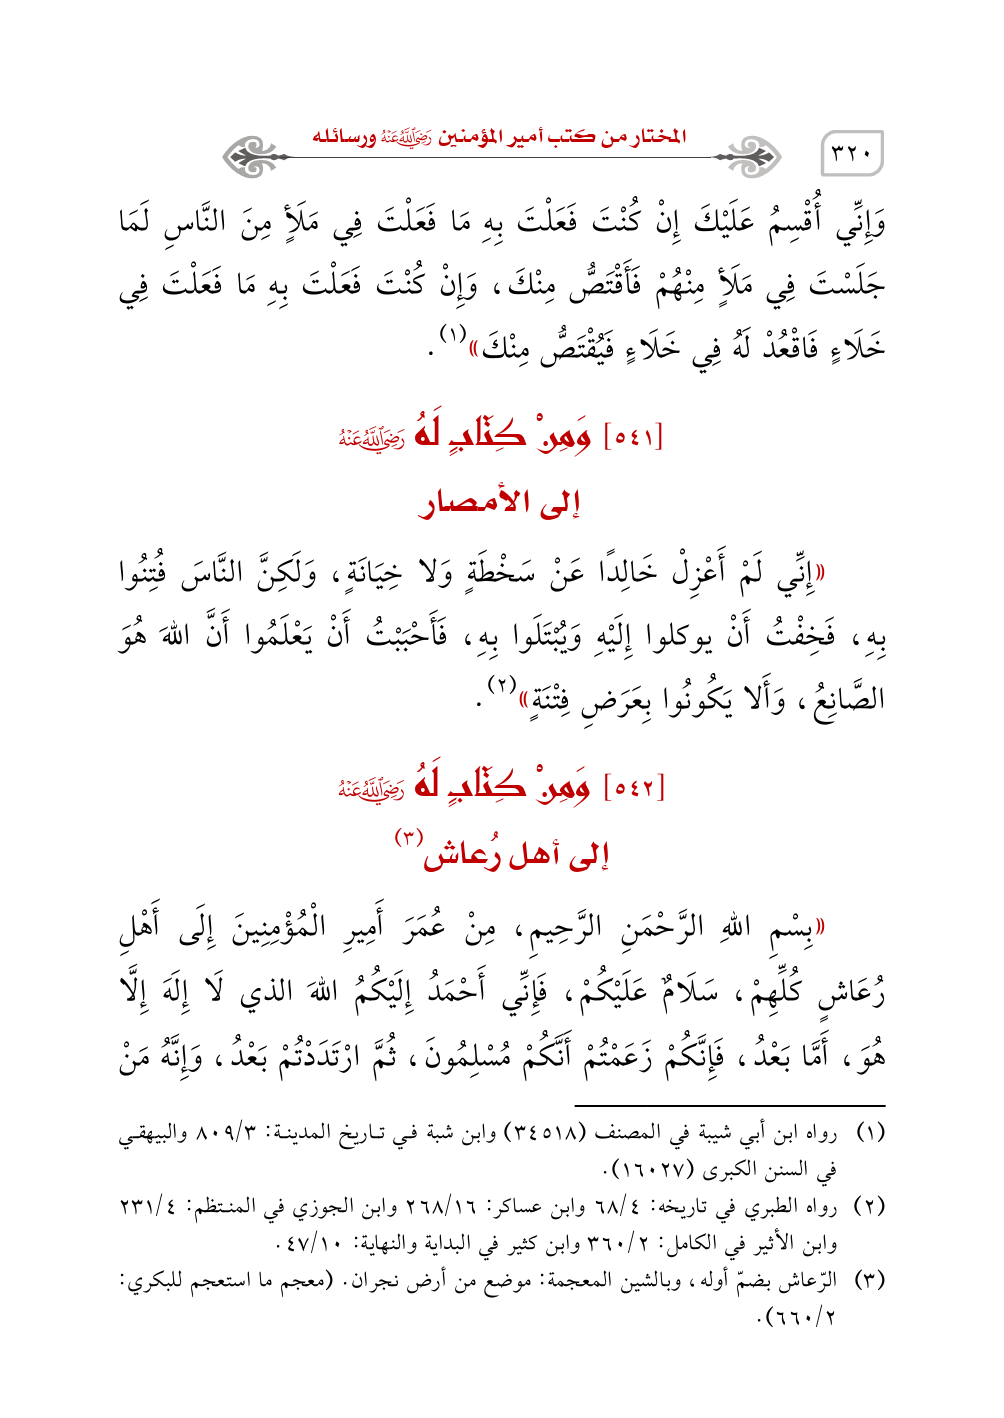 ٣٢٠
المختار من كتب أمير المؤمنين رَضِيَ اللَّهُ عَنْهُ ورسائله
وَإِنِّي أُقْسِمُ عَلَيْكَ إِنْ كُنْتَ فَعَلْتَ بِهِ مَا فَعَلْتَ فِي مَلَأٍ مِنَ النَّاسِ لَمَا
جَلَسْتَ فِي مَلَأٍ مِنْهُمْ فَأَقْتَصُّ مِنْكَ، وَإِنْ كُنْتَ فَعَلْتَ بِهِ مَا فَعَلْتَ فِي
خَلَاءٍ فَاقْعُدْ لَهُ فِي خَلَاءٍ فَيُقْتَصُّ مِنْكَ»(١).
[٥٤١] وَمِنْ كِتَابٍ لَهُ رَضِيَ اللَّهُ عَنْهُ
إلى الأمصار
«إِنِّي لَمْ أَعْزِلْ خَالِدًا عَنْ سَخْطَةٍ وَلا خِيَانَةٍ، وَلَكِنَّ النَّاسَ فُتِنُوا
بِهِ، فَخِفْتُ أَنْ يوكلوا إِلَيْهِ وَيُبْتَلَوا بِهِ، فَأَحْبَبْتُ أَنْ يَعْلَمُوا أَنَّ اللهَ هُوَ
الصَّانِعُ، وَأَلا يَكُونُوا بِعَرَضِ فِتْنَةٍ»(٢).
[٥٤٢] وَمِنْ كِتَابٍ لَهُ رَضِيَ اللَّهُ عَنْهُ
إلى أهل رُعاش(٣)
«بِسْمِ اللهِ الرَّحْمَنِ الرَّحِيمِ، مِنْ عُمَرَ أَمِيرِ الْمُؤْمِنِينَ إِلَى أَهْلِ
رُعَاشٍ كُلِّهِمْ، سَلَامٌ عَلَيْكُمْ، فَإِنِّي أَحْمَدُ إِلَيْكُمُ اللهَ الذي لَا إِلَهَ إِلَّا
هُوَ، أَمَّا بَعْدُ، فَإِنَّكُمْ زَعَمْتُمْ أَنَّكُمْ مُسْلِمُونَ، ثُمَّ ارْتَدَدْتُمْ بَعْدُ، وَإِنَّهُ مَنْ
(١) رواه ابن أبي شيبة في المصنف (٣٤٥١٨) وابن شبة في تاريخ المدينة: ٨٠٩/٣ والبيهقي
في السنن الكبرى (١٦٠٢٧).
(٢) رواه الطبري في تاريخه: ٦٨/٤ وابن عساكر: ٢٦٨/١٦ وابن الجوزي في المنتظم: ٢٣١/٤
وابن الأثير في الكامل: ٣٦٠/٢ وابن كثير في البداية والنهاية: ٤٧/١٠.
(٣) الرّعاش بضمّ أوله، وبالشين المعجمة: موضع من أرض نجران. (معجم ما استعجم للبكري:
٦٦٠/٢).